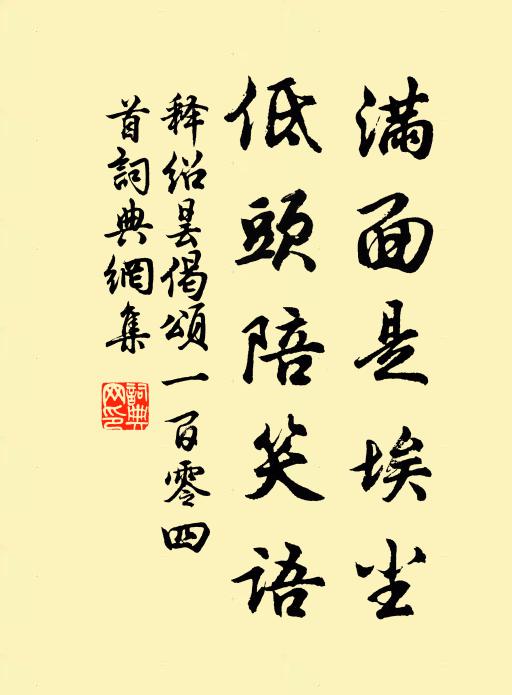 满面是埃尘
低頭陪笑语
释绍昙偈颂一百零四
首詞典網集
詞典
网印